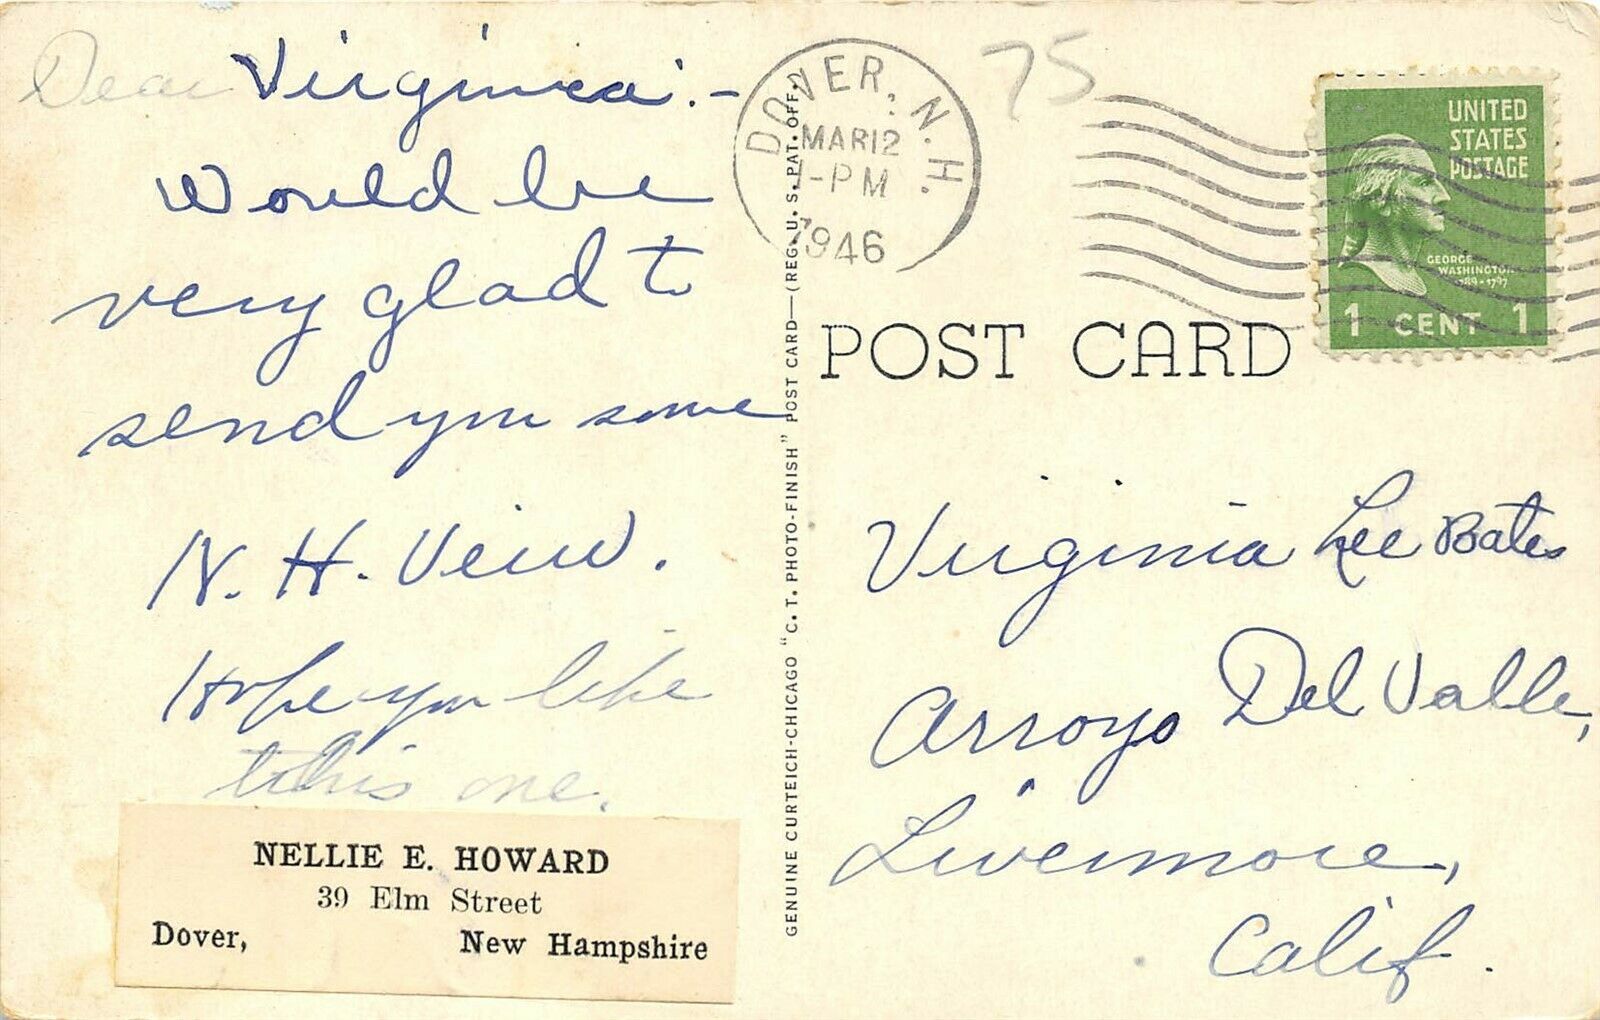 Dear Virginia:-
Would be
very glad to
send you some
N. H. Veiw.
Hope you like
this one.
NELLIE E. HOWARD
39 Elm Street
Dover, New Hampshire
GENUINE CURTEICH-CHICAGO "C. T. PHOTO-FINISH" POST CARD—(REG. U. S. PAT. OFF.)
DOVER, N.H.
MAR 12
1-PM
1946
75
UNITED
STATES
POSTAGE
GEORGE
WASHINGTON
1789-1797
1 CENT 1
POST CARD
Virginia Lee Bates
Arroyo Del Valle,
Livermore,
Calif.